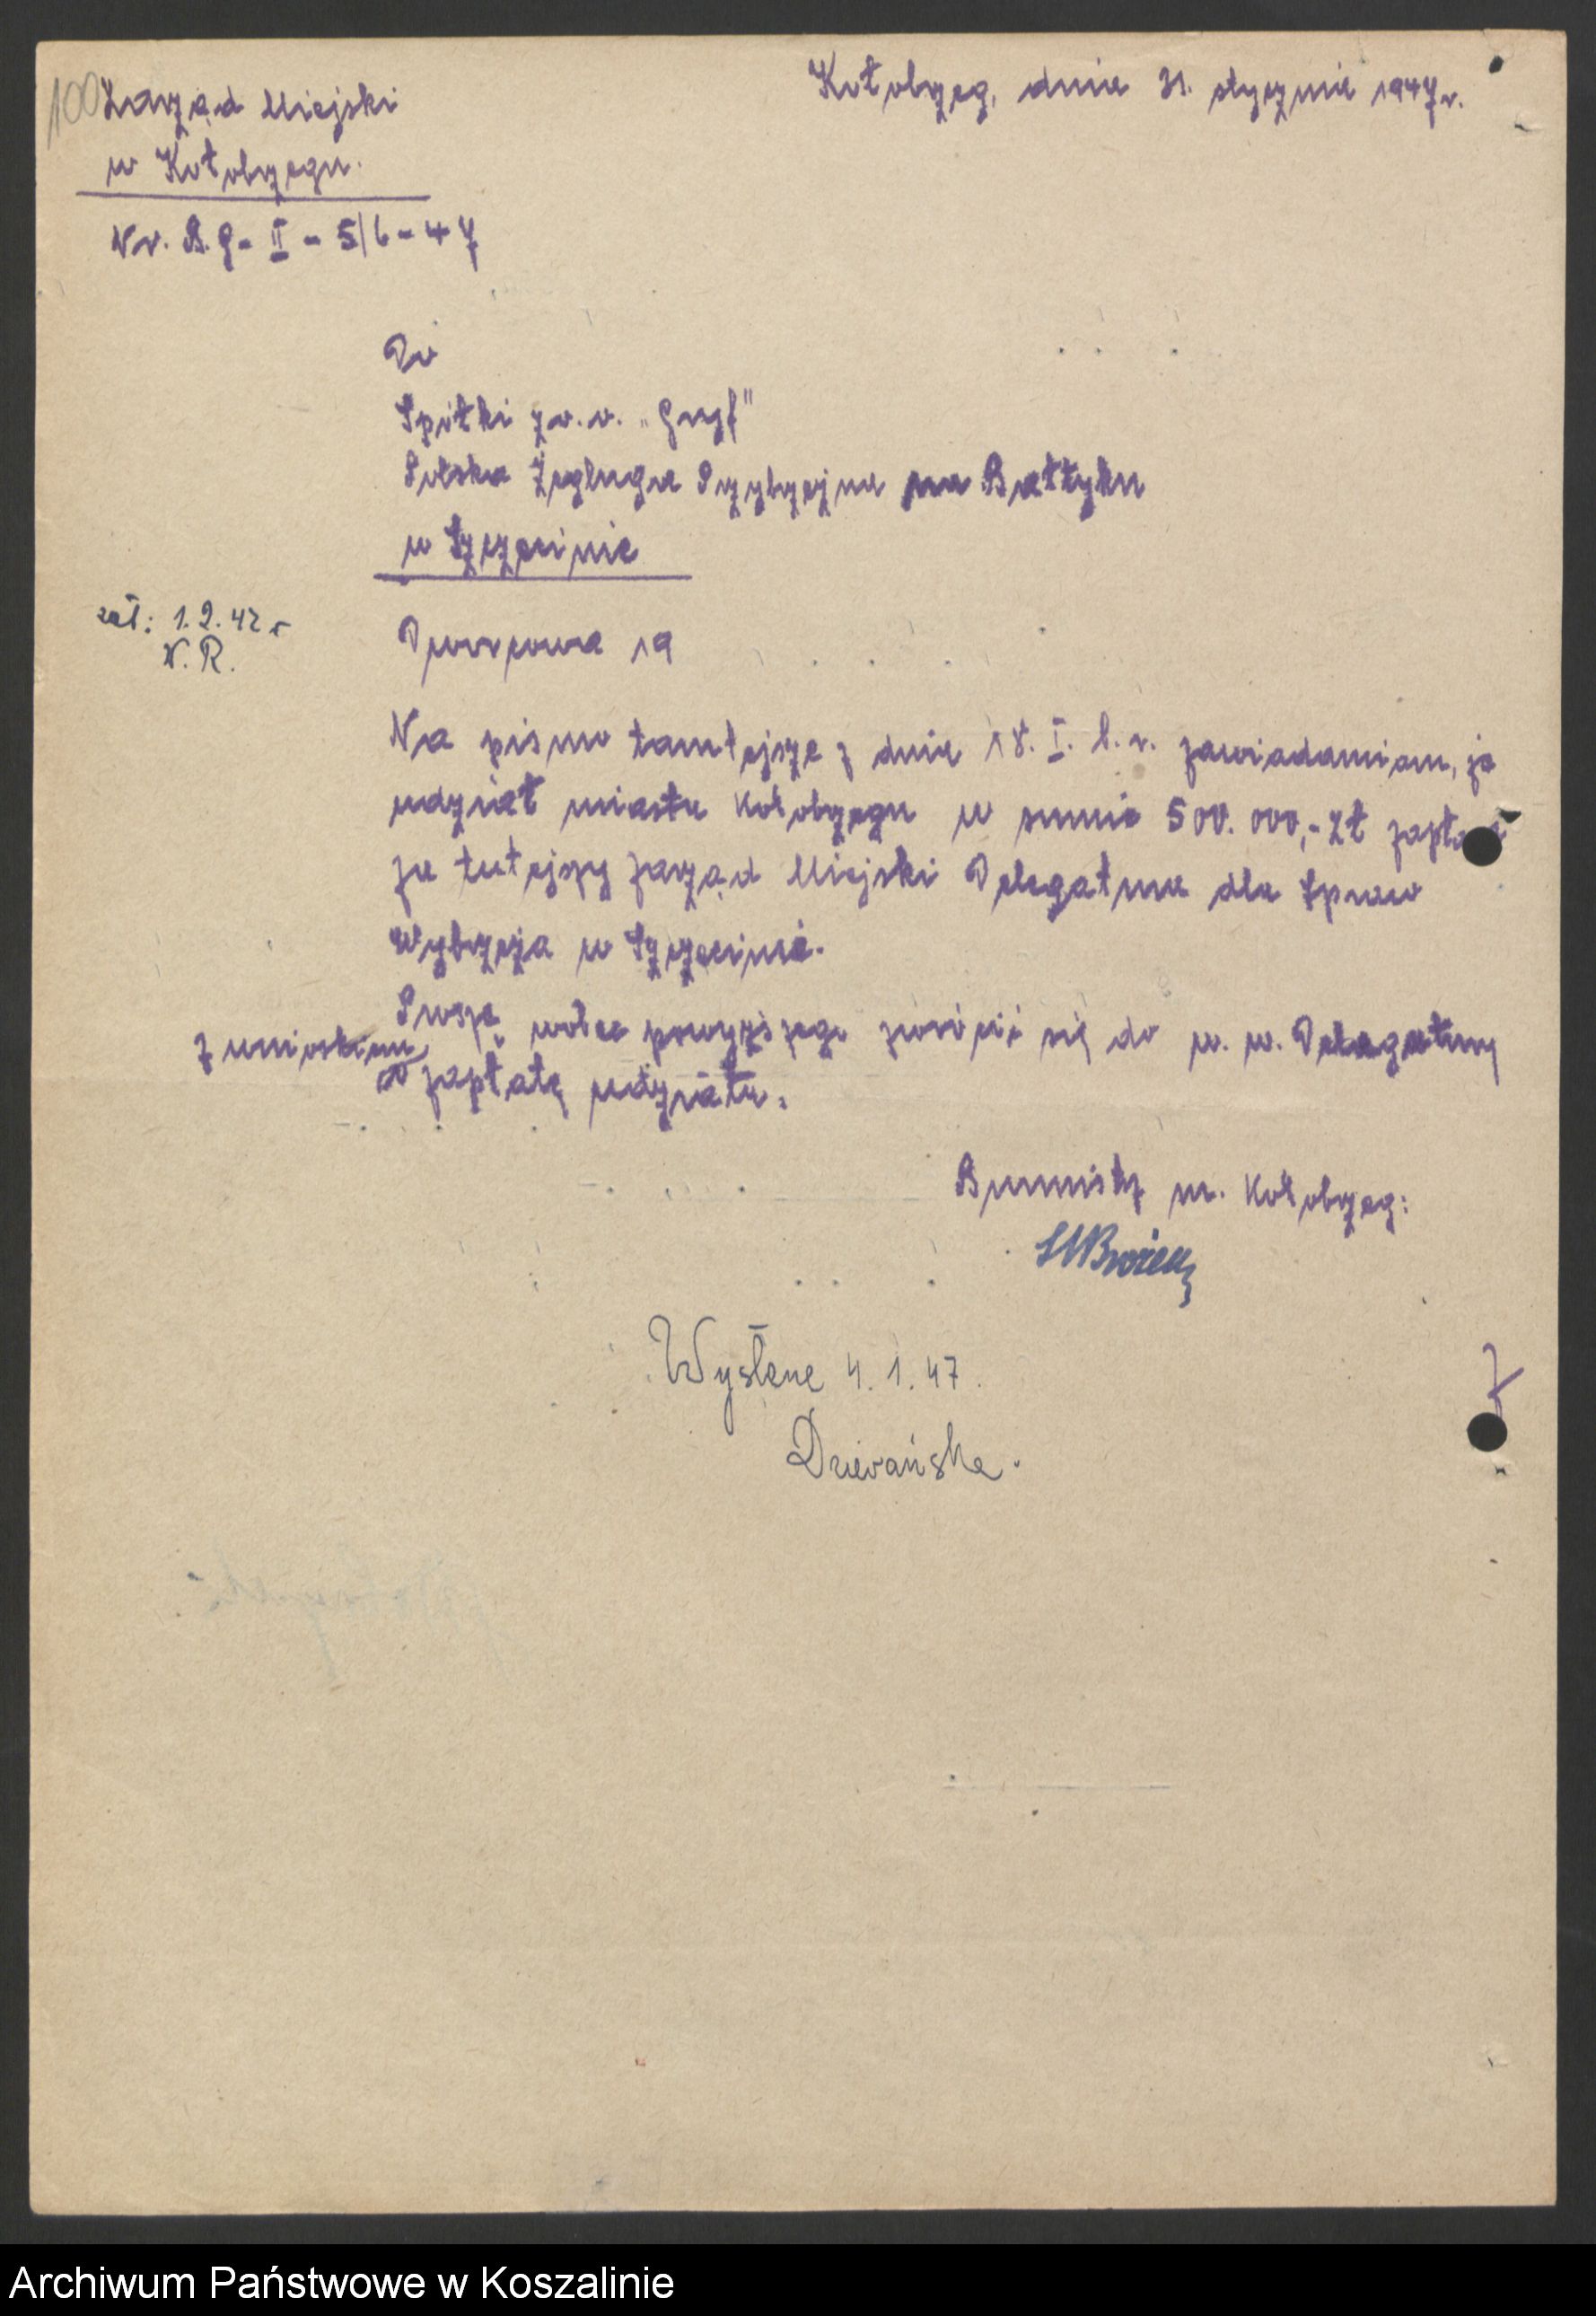 100
Zarząd Miejski
w Kołobrzegu.
Nr. B.G-II-5/6-47
Kołobrzeg, dnia 31. stycznia 1947 r.
Do
Spółki z o. o. „Gryf”
Polska Żegluga Przybrzeżna na Bałtyku
w Szczecinie
zał: 1.2.47 r
N. R.
Dworcowa 19
Na pismo tamtejsze z dnia 18. I. b. r. zawiadamiam, że
udział miasta Kołobrzegu w sumie 500.000,- zł zapłaci
za tutejszy Zarząd Miejski Delegatura dla Spraw
Wybrzeża w Szczecinie.
Proszę wobec powyższego zwrócić się do w. w. Delegatury
z wnioskiem
o zapłatę udziału.
Burmistrz m. Kołobrzeg:
Wysłane 4.1.47.
Archiwum Państwowe w Koszalinie